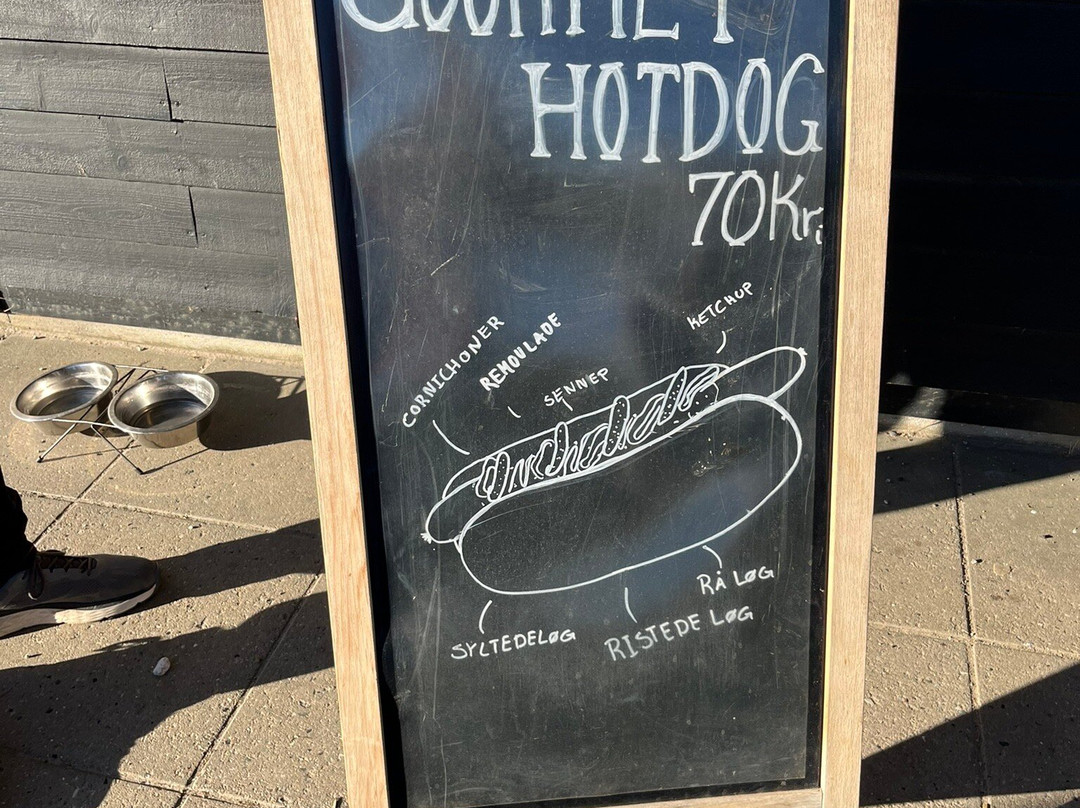 GOURMET
HOTDOG
70Kr.
KETCHUP
CORNICHONER
REMOULADE
SENNEP
RÅ LØG
SYLTEDELØG
RISTEDE LØG